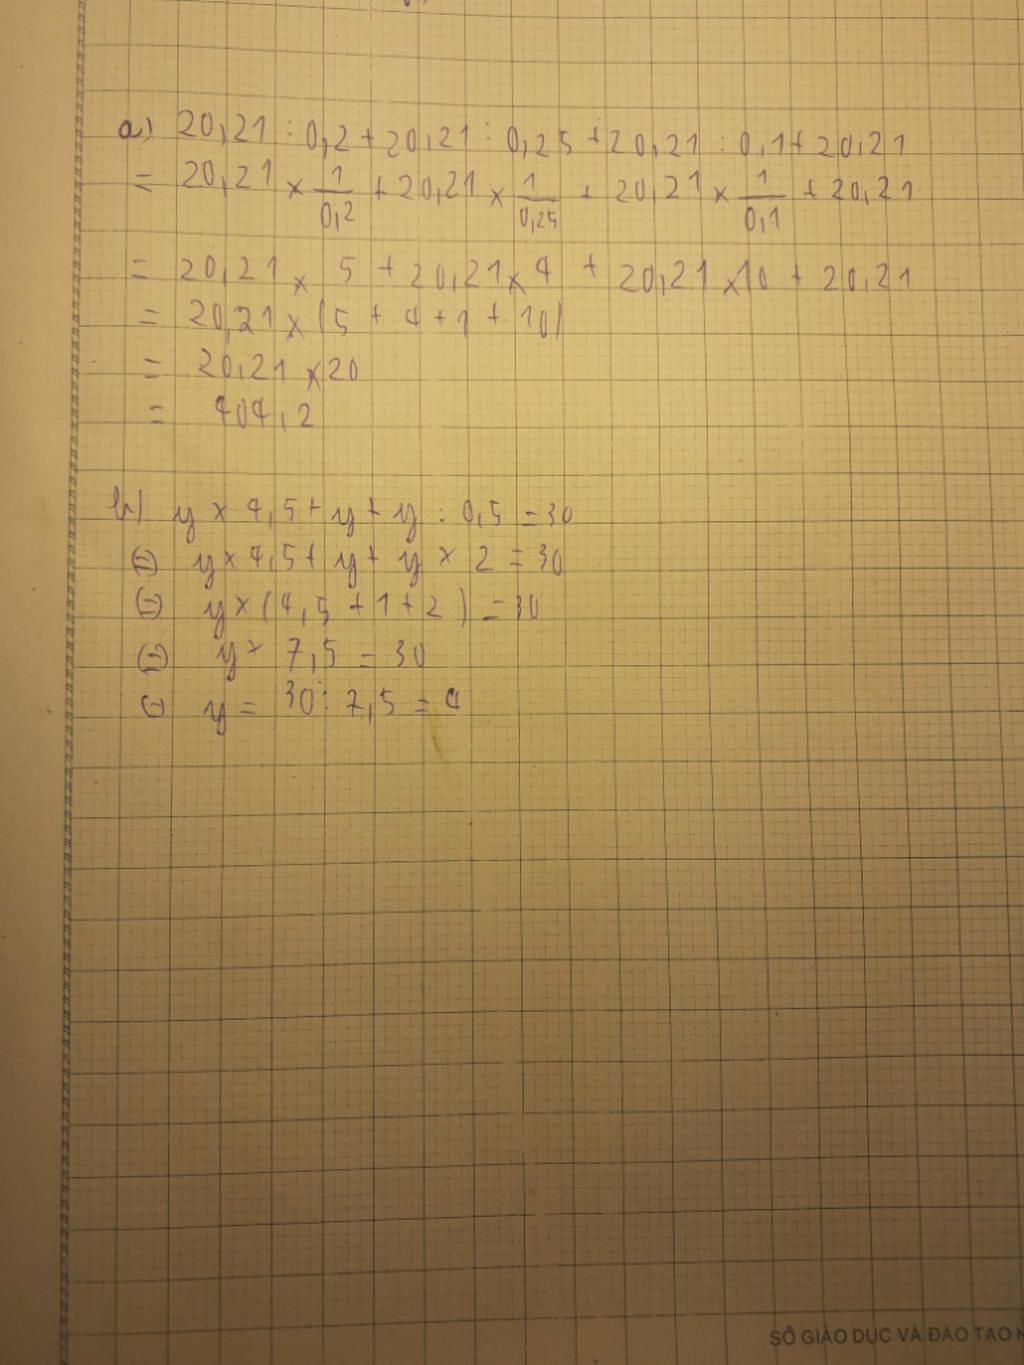 a) 20,21 : 0,2 + 20,21 : 0,25 + 20,21 : 0,1 + 20,21
= 20,21 × 1/0,2 + 20,21 × 1/0,25 + 20,21 × 1/0,1 + 20,21
= 20,21 × 5 + 20,21 × 4 + 20,21 × 10 + 20,21
= 20,21 × (5 + 4 + 1 + 10)
= 20,21 × 20
= 404,2
b) y × 4,5 + y + y : 0,5 = 30
(=) y × 4,5 + y + y × 2 = 30
(=) y × (4,5 + 1 + 2) = 30
(=) y × 7,5 = 30
(=) y = 30 : 7,5 = 4
SỞ GIÁO DỤC VÀ ĐÀO TẠO